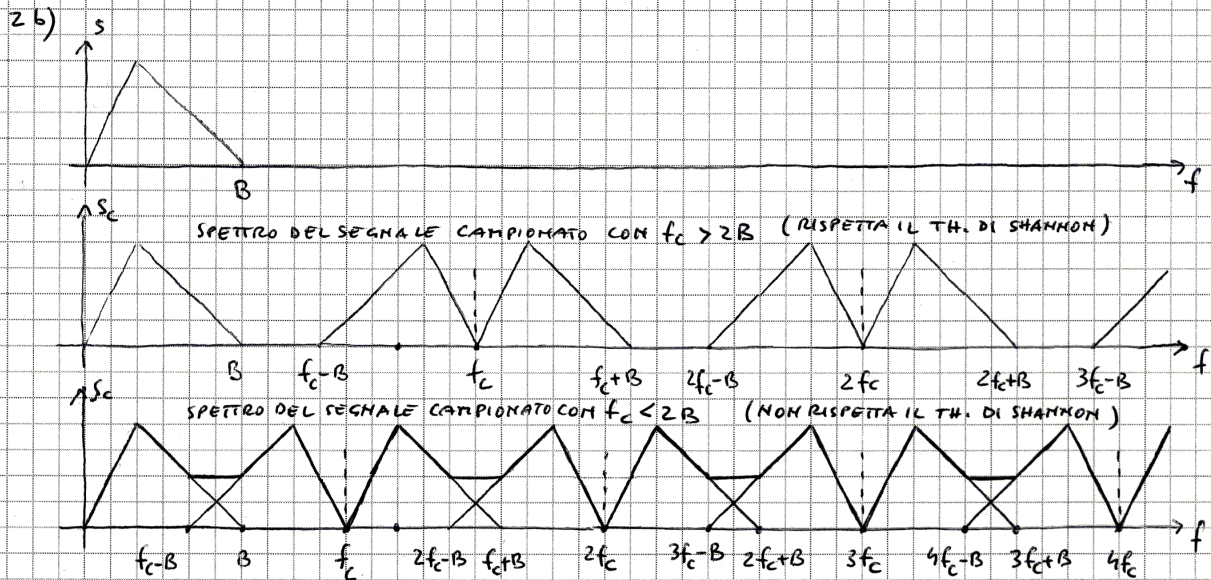 2 b)
S
B
f
Sc
SPETTRO DEL SEGNALE CAMPIONATO CON fc > 2B (RISPETTA IL TH. DI SHANNON)
B fc-B fc fc+B 2fc-B 2fc 2fc+B 3fc-B f
Sc
SPETTRO DEL SEGNALE CAMPIONATO CON fc < 2B (NON RISPETTA IL TH. DI SHANNON)
fc-B B fc 2fc-B fc+B 2fc 3fc-B 2fc+B 3fc 4fc-B 3fc+B 4fc f